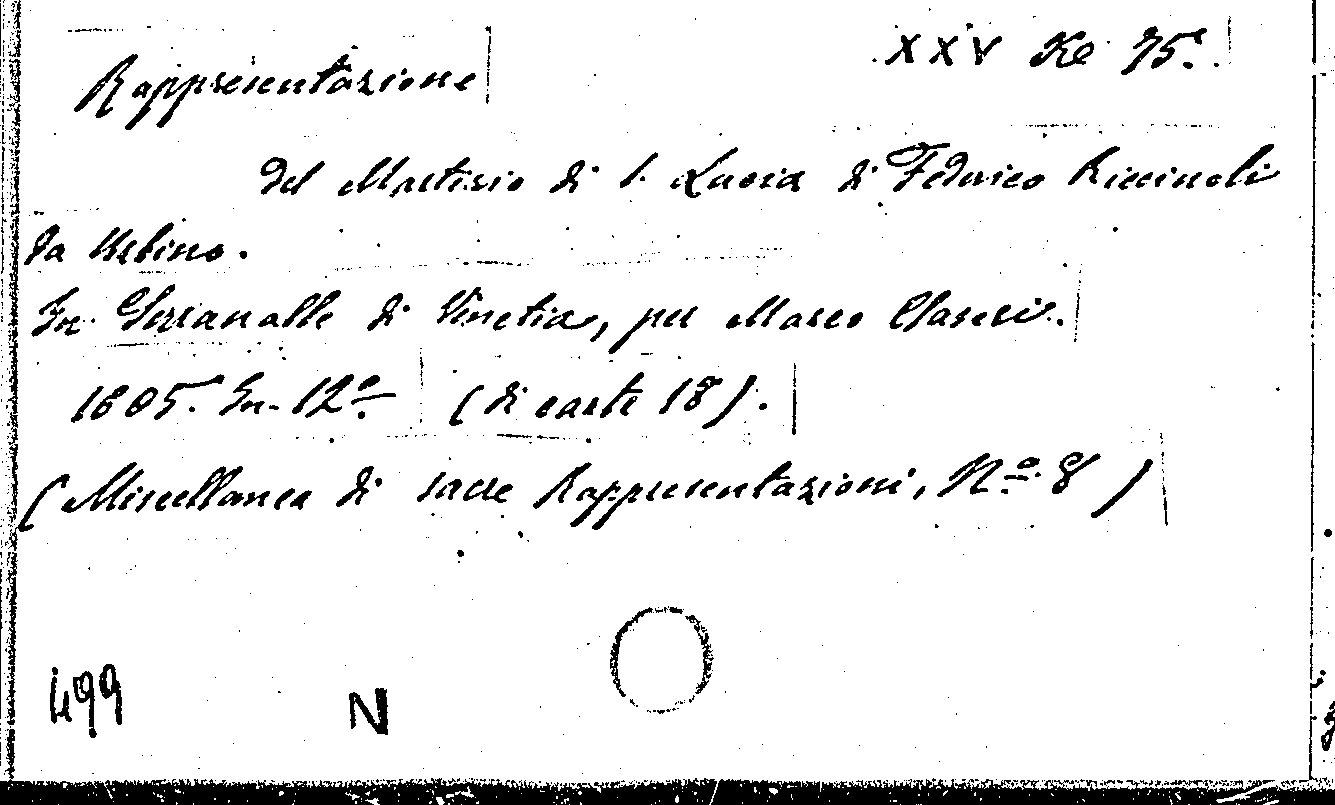 Rappresentazione
XXV Ke 75.
del Martirio di S. Lucia di Federico Riccinoli
da Urbino.
In Serravalle di Venetia, per Marco Claseri.
1605. In-12º. (di carte 18).
(Miscellanea di sacre Rappresentazioni, Nº. 8)
499
N